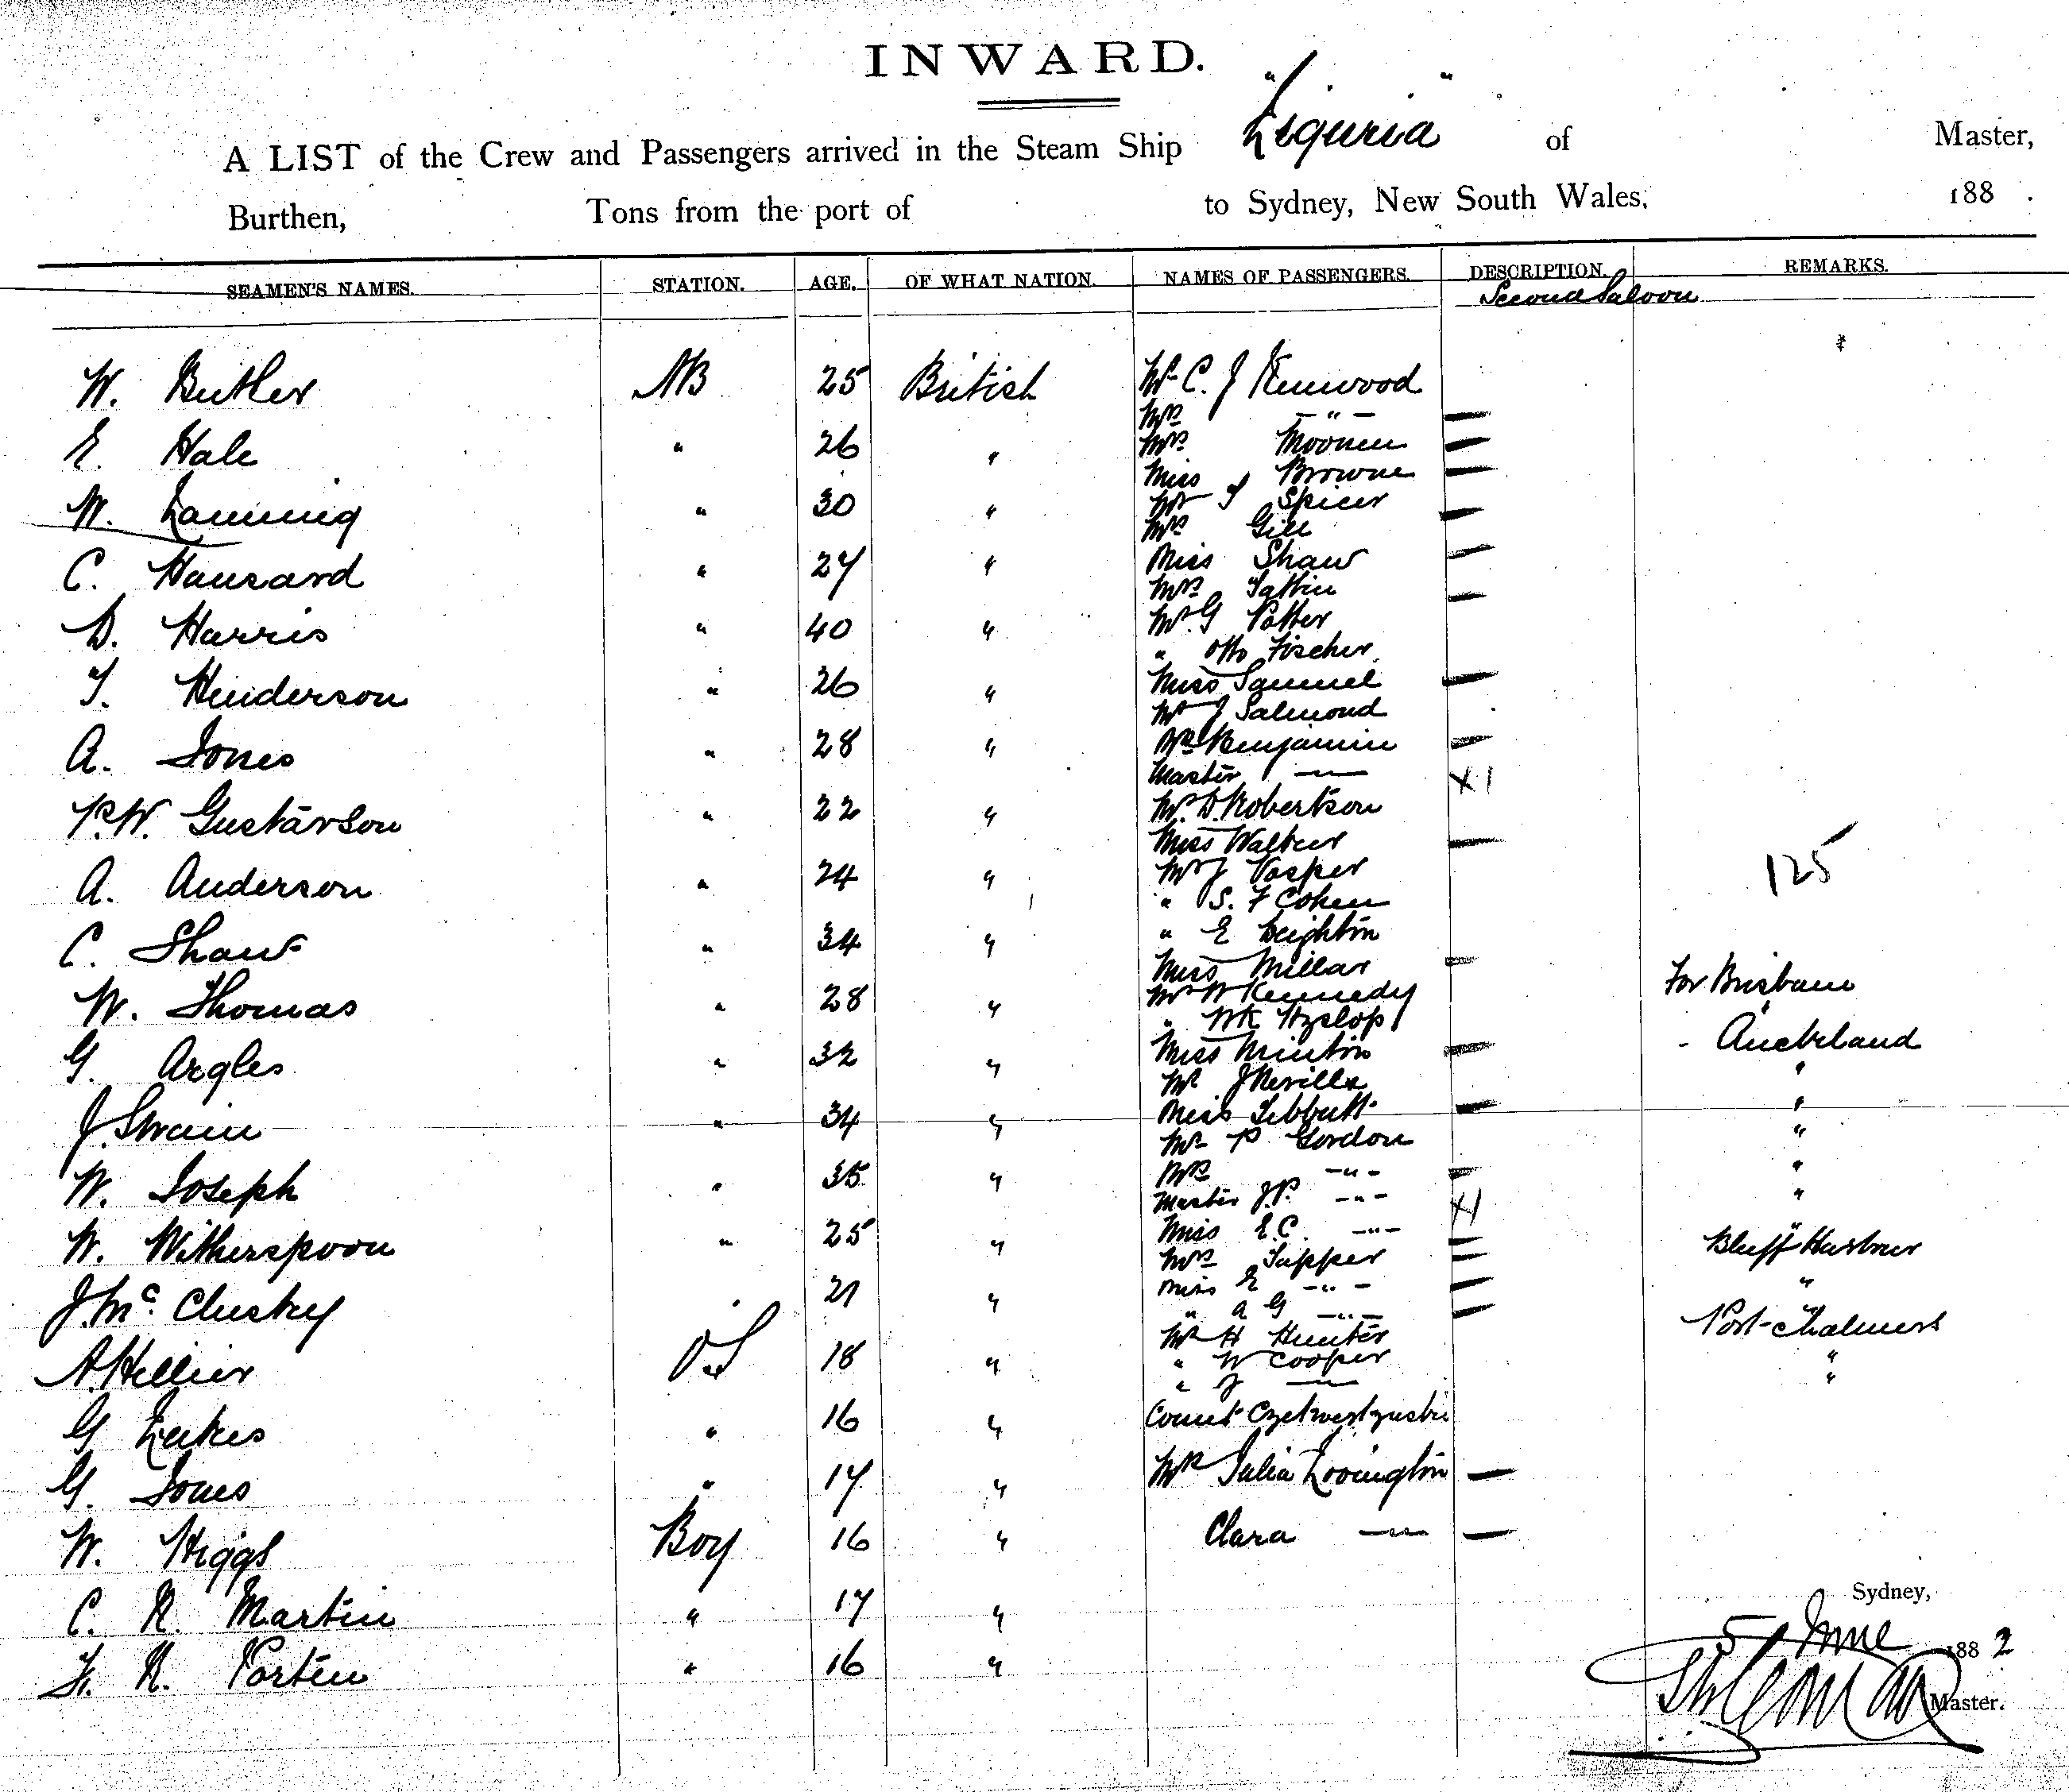 INWARD.
A LIST of the Crew and Passengers arrived in the Steam Ship "Liguria" of Master,
Burthen, Tons from the port of to Sydney, New South Wales, 188 .
SEAMEN'S NAMES. STATION. AGE. OF WHAT NATION. NAMES OF PASSENGERS. DESCRIPTION. REMARKS.
Second Saloon
W. Butler AB 25 British Mr C. J Kenwood
Mrs — " —
E. Hale " 26 " Mrs Moonen
Miss Browne
W. Lanning " 30 " Mr T Spicer
Mrs Gill
C. Hansard " 27 " Miss Shaw
Mrs
D. Harris " 40 " Mr G Potter
" Otto Fischer
T. Henderson " 26 " Miss Samuel
Mr J Salmond
A. Jones " 28 " Mrs Benjamin
Master — " — X 1
P.W. Gustavson " 22 " Mr D. Robertson
Miss Walker
A. Anderson " 24 " Mr J Vosper 125
" S. F Cohen
C. Shaw " 34 " " E Leighton
Miss Millar
W. Thomas " 28 " Mr W Kennedy For Brisbane
" Wk Hyslop "
G. Argles " 32 " Miss Minton - Auckland
Mr J Nevill "
J. Swain " 34 " Miss Tebbutt "
Mr P Gordon "
W. Joseph " 35 " Mrs — " — "
Master J.P. — " — X 1 "
W. Witherspoon " 25 " Miss E.C. — " — "
Mrs Tapper Bluff Harbour
J. Mc. Clusky " 21 " Miss E — " — "
" A G — " — "
A. Hellier OS 18 " Mr H Hunter Port-Chalmers
" W Cooper "
" J — " — "
G 16 " Count
G. Jones " 17 " Mrs Julia Lovington
W. Higgs Boy 16 " Clara — " —
C. R. Martin " 17 "
F. R. Porten " 16 "
Sydney,
5 June 188 2
Master.